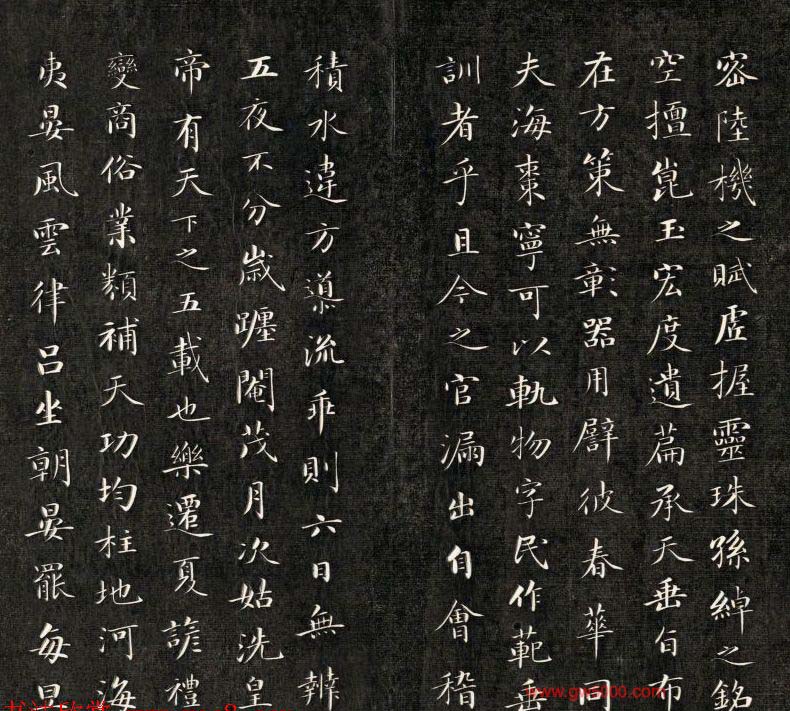 密陸機之賦虛握靈珠孫綽之銘
空擅崑玉宏度遺篇承天垂旨布
在方策無彰器用譬彼春華同
夫海棗寧可以軌物字民作範垂
訓者乎且今之官漏出自會稽
積水違方導流乖則六日無辨
五夜不分歲躔閹茂月次姑洗皇
帝有天下之五載也樂遷夏諺禮
變商俗業類補天功均柱地河海
夷晏風雲律呂坐朝晏罷每旦
www.gx8000.com
书法欣赏